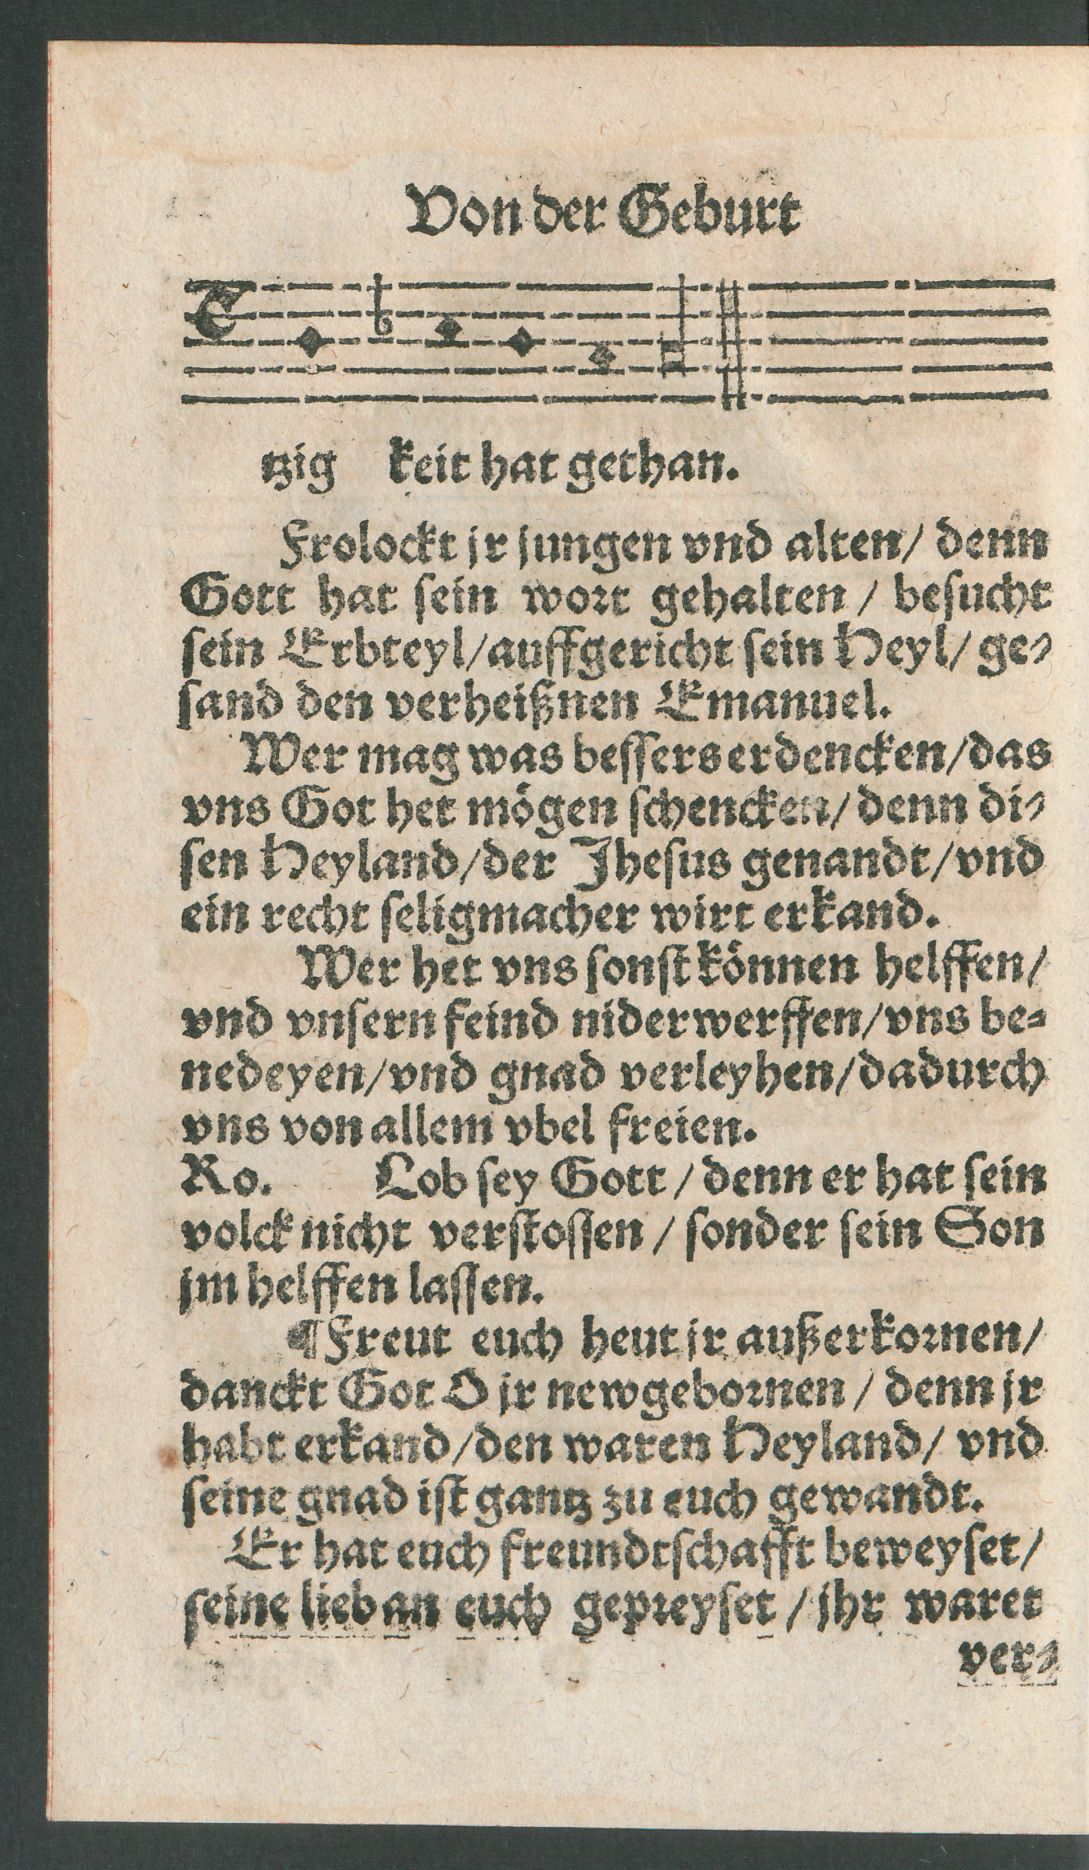 Von der Geburt
tzig keit hat gethan.
Frolockt jr jungen vnd alten/ denn
Gott hat sein wort gehalten / besucht
sein Erbteyl/auffgericht sein Heyl/ ge-
sand den verheißnen Emanuel.
Wer mag was bessers erdencken/das
vns Got het mögen schencken/ denn di-
sen Heyland/der Jhesus genandt/vnd
ein recht seligmacher wirt erkand.
Wer het vns sonst können helffen/
vnd vnsern feind niderwerffen/vns be-
nedeyen/vnd gnad verleyhen/dadurch
vns von allem vbel freien.
Ro. Lob sey Gott / denn er hat sein
volck nicht verstossen / sonder sein Son
jm helffen lassen.
¶Freut euch heut jr außerkornen/
danckt Got O jr newgebornen / denn jr
habt erkand/den waren Heyland/ vnd
seine gnad ist gantz zu euch gewandt.
Er hat euch freundtschafft beweyset/
seine lieb an euch gepreyset / jhr waret
ver-